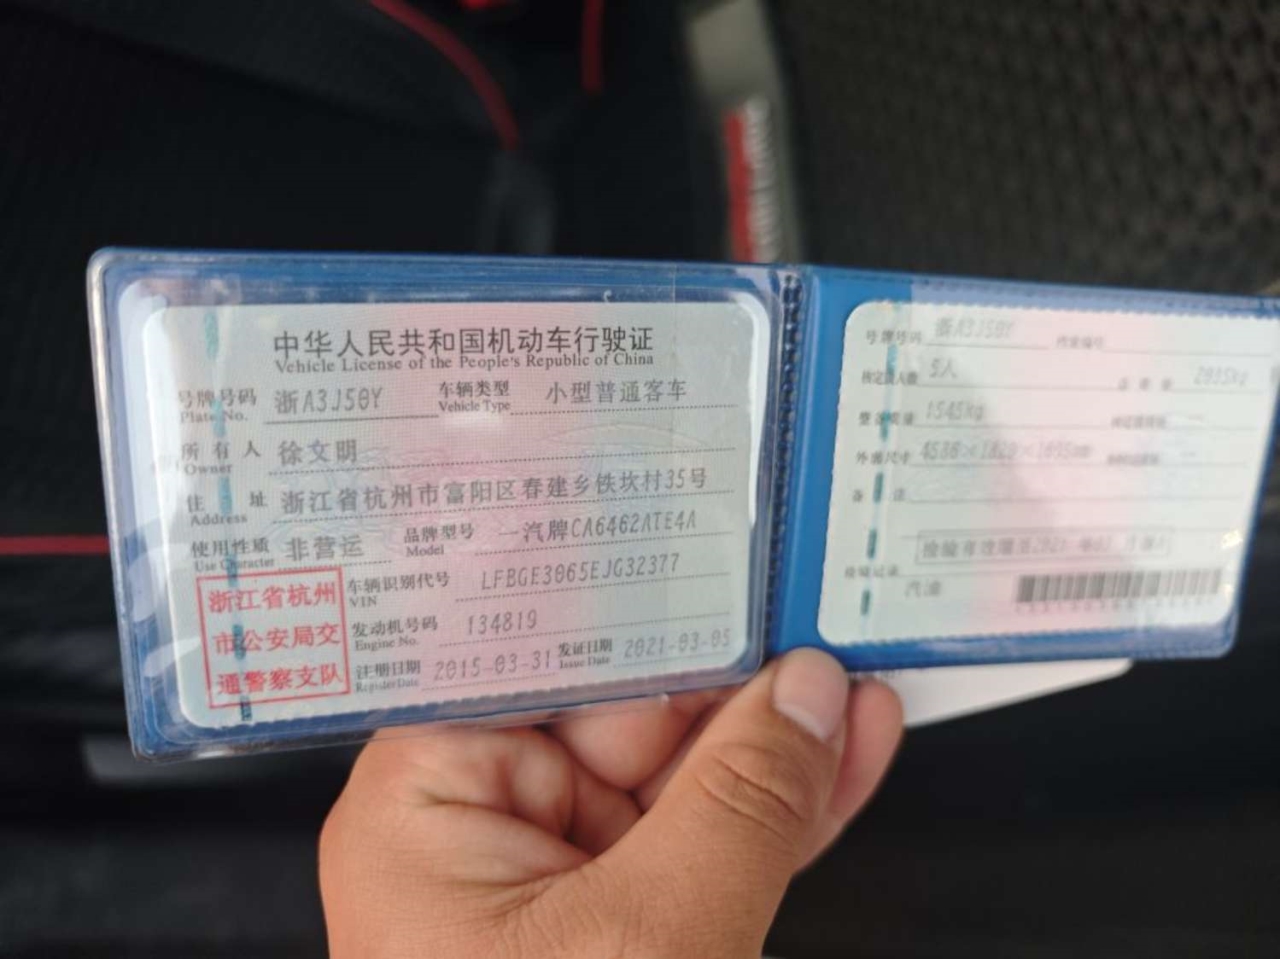 中华人民共和国机动车行驶证
Vehicle License of the People's Republic of China
号牌号码 浙A3J50Y 车辆类型 小型普通客车
Plate No. Vehicle Type
所有人 徐文明
Owner
住址 浙江省杭州市富阳区春建乡铁坎村35号
Address
使用性质 非营运 品牌型号 一汽牌CA6462ATE4A
Use Character Model
浙江省杭州
市公安局交
通警察支队
车辆识别代号 LFBGE3065EJG32377
VIN
发动机号码 134819
Engine No.
注册日期 2015-03-31 发证日期 2021-03-05
Register Date Issue Date
号牌号码 浙A3J50Y 档案编号
核定载人数 5人 总质量
整备质量 1545kg 核定载质量
外廓尺寸
备注
检验记录
汽油